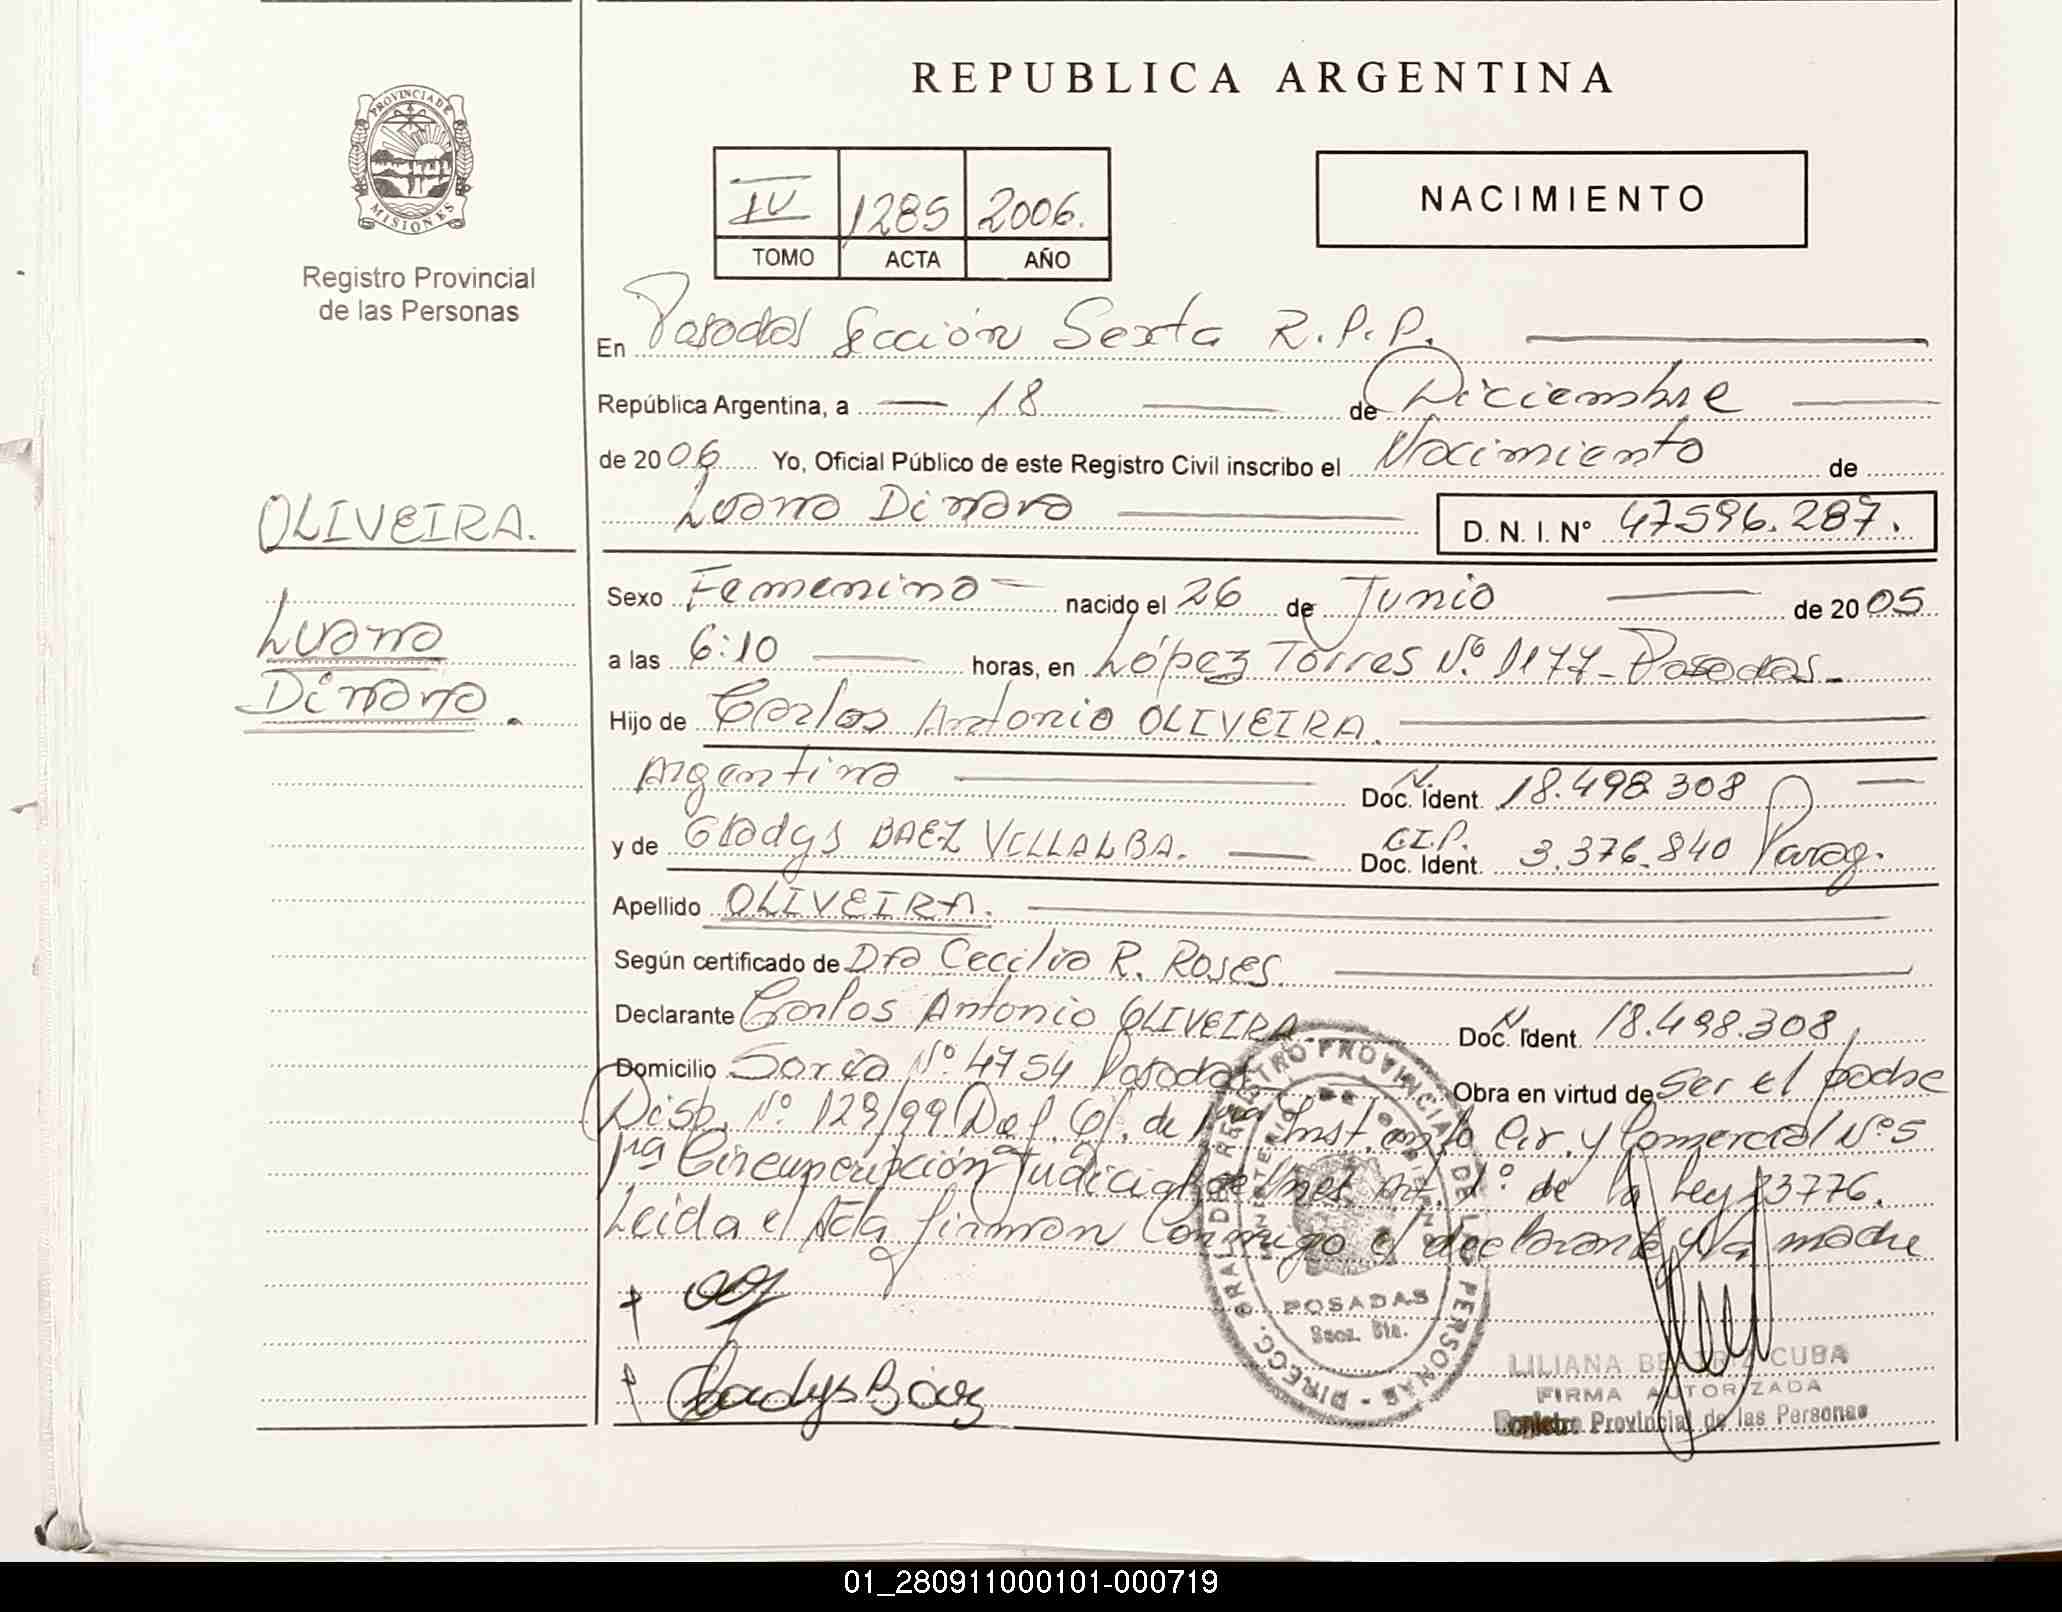 REPUBLICA ARGENTINA
PROVINCIA DE MISIONES
Registro Provincial
de las Personas
IV 1285 2006.
TOMO ACTA AÑO
NACIMIENTO
En Posadas Sección Sexta R.P.P.
República Argentina, a 18 de Diciembre
de 2006 Yo, Oficial Público de este Registro Civil inscribo el Nacimiento de
OLIVEIRA.
Luana
D. N. I. Nº 47596.287.
Luana
Sexo Femenino nacido el 26 de Junio de 2005
a las 6:10 horas, en López Torres Nº 1177 - Posadas.
Hijo de Carlos Antonio OLIVEIRA.
Argentina N. Doc. Ident. 18.498.308
y de Gladys BAEZ VILLALBA. C.I.P. Doc. Ident. 3.376.840 Parag.
Apellido OLIVEIRA.
Según certificado de Dra Cecilia R. ROSES.
Declarante Carlos Antonio OLIVEIRA N. Doc. Ident. 18.498.308
Domicilio Soria Nº 4754 Posadas Obra en virtud de Ser el padre
Disp. Nº 129/99 Def. Of. de 1ra Inst. en lo Civ. y Comercial Nº 5
1ra Circunscripción Judicial de Mnes. Art. 1º de la Ley 23776.
Leida el Acta firman Conmigo el declarante y la madre
DIRECC. GRAL. DE REGISTRO PROVINCIAL DE LAS PERSONAS
MINISTERIO DE GOBIERNO
POSADAS
Secc. 6ta.
Gladys Báez
LILIANA BEATRIZ CUBA
FIRMA AUTORIZADA
Registro Provincial de las Personas
01_280911000101-000719